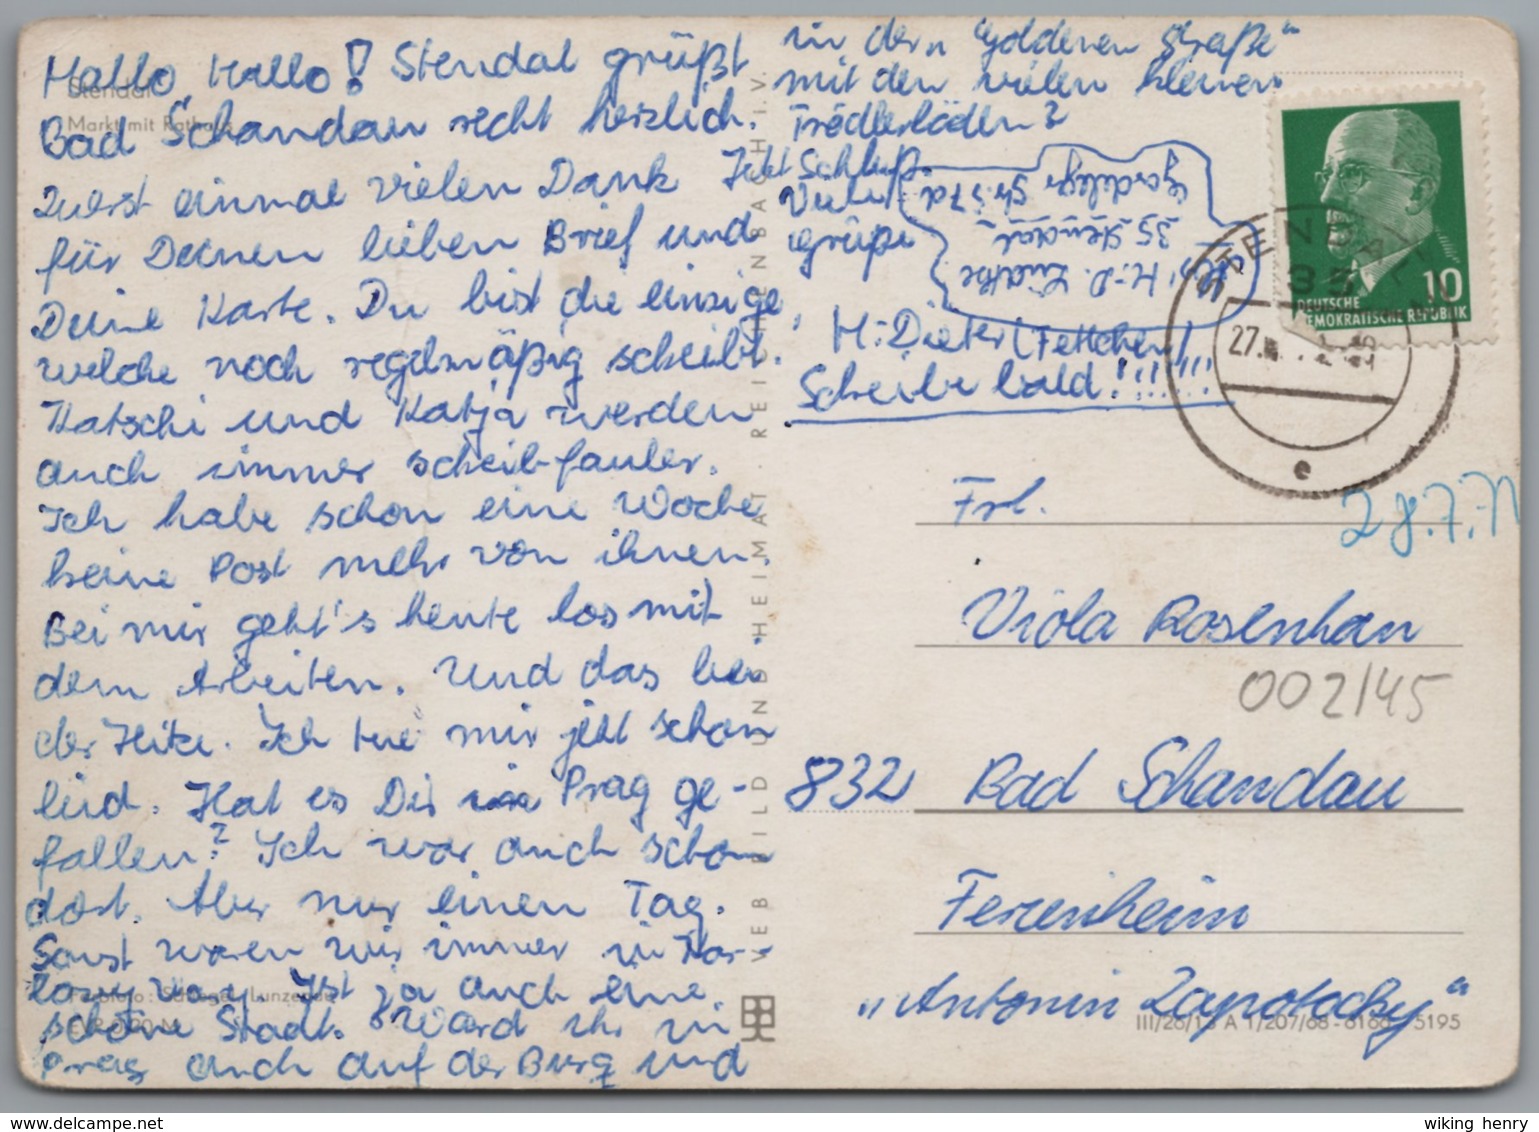 Hallo, Hallo! Stendal grüßt
Bad Schandau recht herzlich.
Zuerst einmal vielen Dank
für Deinen lieben Brief und
Deine Karte. Du bist die einzige,
welche noch regelmäßig scheibt.
Katschi und Katja werden
auch immer scheib-fauler.
Ich habe schon eine Woche
keine Post mehr von ihnen.
Bei mir geht's heute los mit
dem Arbeiten. Und das bei
der Hitze. Ich tue mir jetzt schon
leid. Hat es Dir in Prag ge-
fallen? Ich war auch schon
dort. Aber nur einen Tag.
Sonst waren wir immer in Kar-
lovy vary. Ist ja auch eine
schöne Stadt. Ward ihr in
Prag auch auf der Burg und
in der "goldenen Straße"
mit den vielen kleinen
Trödlerläden?
Jetzt Schluß.
Viele
Grüße
H.-Dieter (Fettchen)
Scheibe bald!!!!!!!
Abs. H.-D. Lüdtke
35 Stendal
Gardeleger Str. 37d
Stendal
Markt mit Rathaus
VEB BILD UND HEIMAT REICHENBACH I.V.
III/26/13 A 1/207/68
5195
DEUTSCHE
DEMOKRATISCHE REPUBLIK
10
STENDAL
35
27.
e
28.7.71
Frl.
Viola Rosenhan
002/45
832 Bad Schandau
Ferienheim
"Antonin Zapotocky"
wiking henry